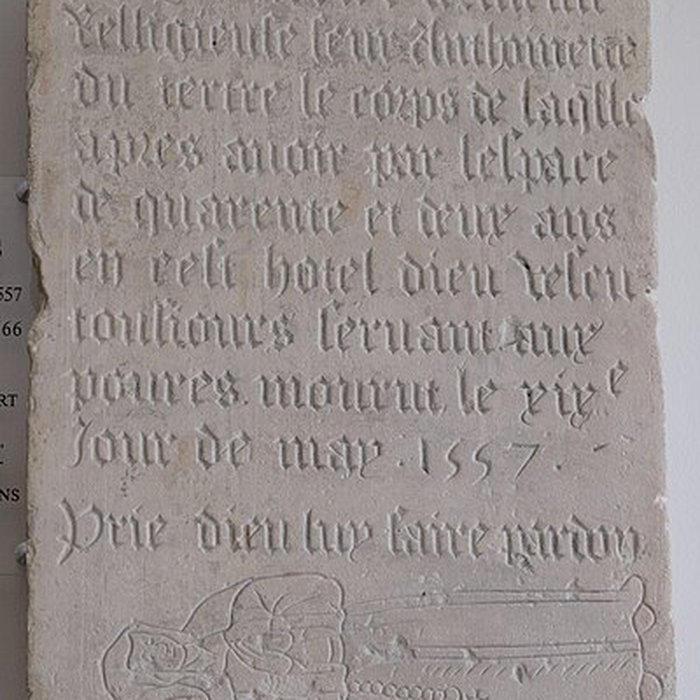 Relligieuse seur Anthoinette
du tertre le corps de laqlle
apres auoir par lespace
de quarente et deux ans
en cest hotel dieu vescu
tousiours seruant aux
poures mourut le xix e
Jour de may . 1557 .
Prie dieu luy faire pardon
557
66
RT
NS